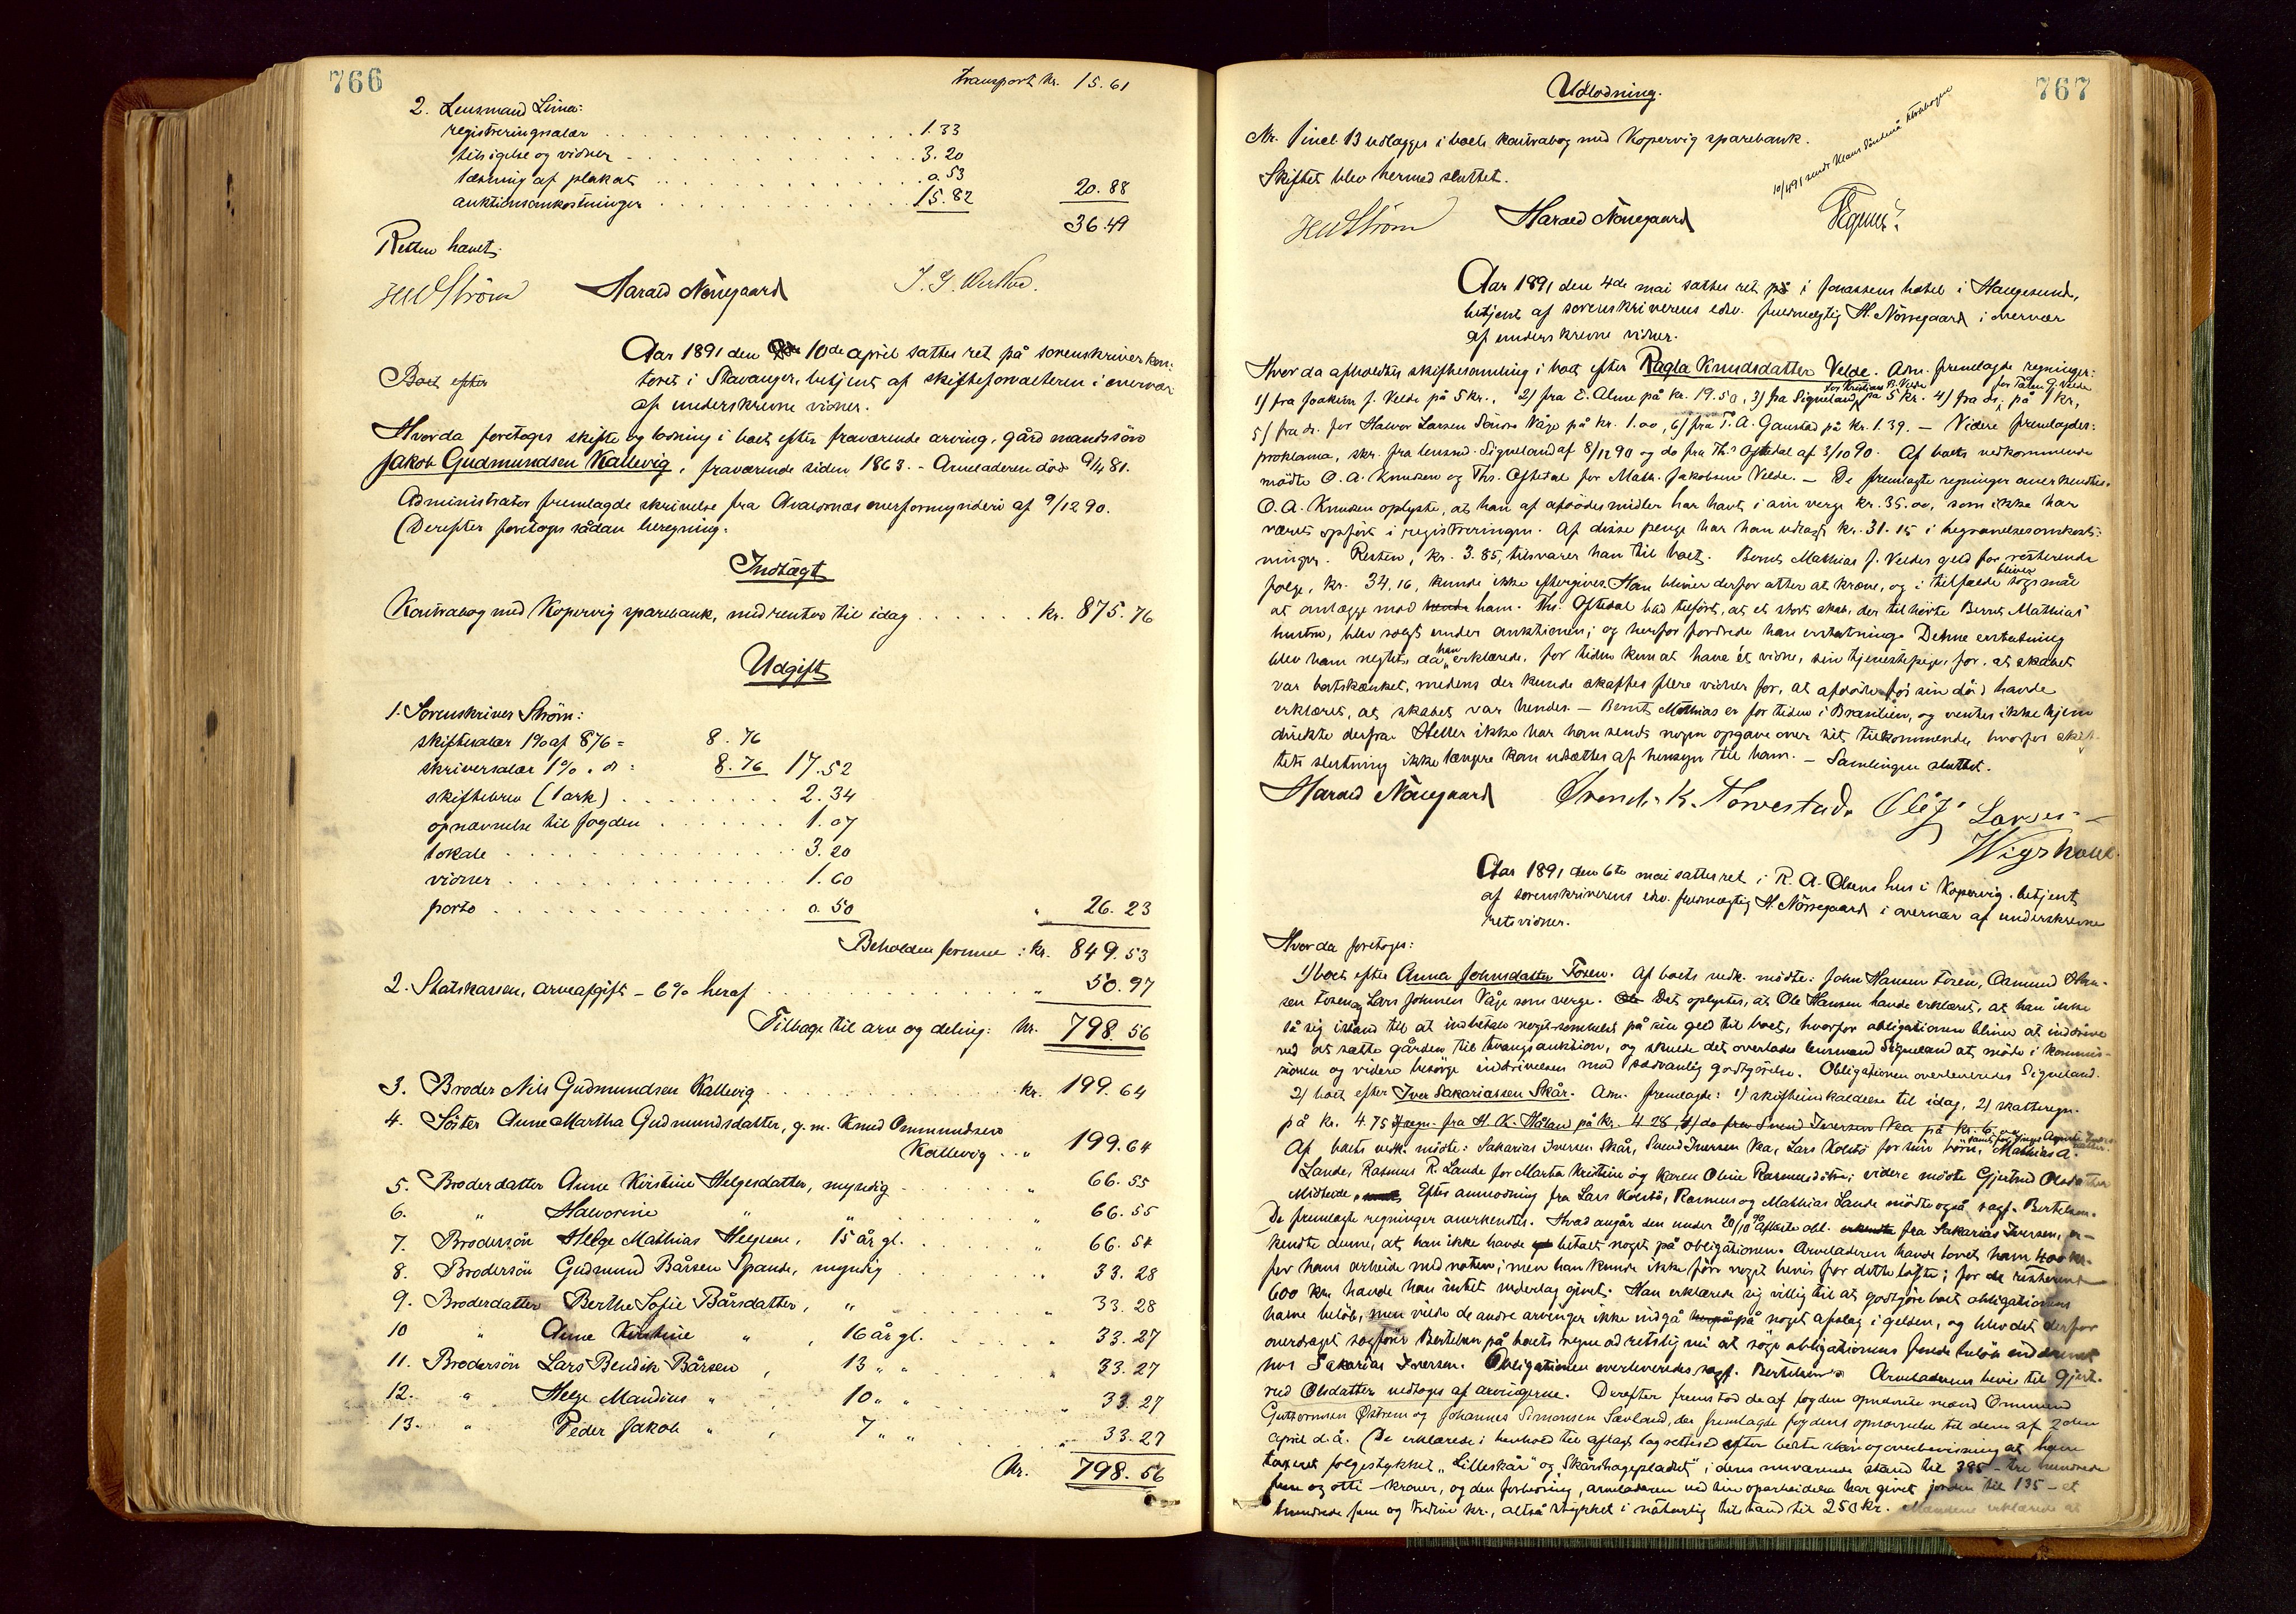 766
Transport kr. 15.61
2. Lensmand Lima:
registreringssalær . . . 1.33
tilsigelse og vidner . . . 3.20
læsning af plakat . . . 0.53
auktionsomkostninger . . . 15.82 20.88
36.49
Retten hævet.
HWStrøm Harald Nørregaard
Aar 1891 den 10de april sattes ret på sorenskriverkon-
Boet efter
toret i Stavanger, betjent af skifteforvalteren i overvær
af underskrevne vidner.
Hvorda foretoges skifte og lodning i boet efter fraværende arving, gårdmandssøn
Jakob Gudmundsen Kallevig, fraværende siden 1863. - Arveladeren død 9/4 81.
Administrator fremlagde skrivelse fra Avaldsnæs overformynderi af 9/12 90.
Derefter foretoges sådan beregning:
Indtægt
Kontrabog med Kopervig sparebank, med renter til idag . . . kr. 875.76
Udgift
1. Sorenskriver Strøm:
skiftesalær 1% af 876 = 8.76
skriversalær 1% " do = 8.76 17.52
skiftebrev (1 ark) . . . 2.34
opnævnelse til fogden . . . 1.07
lokale . . . 3.20
vidner . . . 1.60
porto . . . 0.50 " 26.23
Beholden formue : kr. 849.53
2. Statskassen, arveafgift - 6% heraf . . . " 50.97
Tilbage til arv og deling: kr. 798.56
3. Broder Nils Gudmundsen Kallevig . . . kr. 199.64
4. Søster Anne Martha Gudmundsdatter, g.m. Knud Ommundsen
Kallevig . . " 199.64
5. Broderdatter Anne Kirstine Helgesdatter, myndig . . . " 66.55
6. " Halvorine " " . . . " 66.55
7. Brodersøn Helge Mathias Helgesen, 15 år gl. . . . " 66.54
8. Brodersøn Gudmund Bårsen Spande, myndig . . . " 33.28
9. Broderdatter Berthe Sofie Bårsdatter, " . . . " 33.28
10 " Anne Kirstine " , 16 år gl. . . . 33.27
11. Brodersøn Lars Bendik Bårsen , 13 " " . . . " 33.27
12. " Helge Mandius " , 10 " " . . . " 33.27
13. " Peder Jakob " , 7 " " . . . " 33.27
Kr. 798.56
767
Udlodning.
Nr. 1 incl. 13 udlægges i boets kontrabog med Kopervig sparebank.
Skiftet blev hermed sluttet.
HWStrøm Harald Nørregaard
Aar 1891 den 4de mai sattes ret på i Jonassens hotel i Haugesund,
betjent af sorenskriverens edsv. fuldmægtig H. Nørregaard i overvær
af underskrevne vidner.
Hvorda afholdtes skiftesamling i boet efter Ragla Knudsdatter Velde. Adm. fremlagde regninger:
for Kristian B. Velde for Tålen G. Velde
1) fra Joakim J. Velde på 5 kr., 2) fra E. Alme på kr. 19.50, 3) fra Signeland på 5 kr. 4) fra ds. på 1 kr,
5) fra ds. for Halvor Larsen Våge på kr. 1.00, 6) fra T. A. Ganstad på kr. 1.39. - Videre fremlagdes:
proklama, skr. fra lensmd. Signeland af 8/12 90 og do fra Ths. Oftedal af 3/10 90. Af boets vedkommende
mødte O. A. Knudsen og Ths. Oftedal for Math. Jakobsen Velde. - De fremlagte regninger anerkendtes.
O. A. Knudsen oplyste, at han af afdødes midler har havt i sin verge kr. 35.00, som ikke har
været opført i registreringen. Af disse penge har han udlagt kr. 31.15 i begravelsesomkost-
ninger. Resten, kr. 3.85, tilsvarer han til boet. Bernt Mathias J. Veldes gjeld for resterende
bliver
følge, kr. 34,16, kunde ikke eftergives. Han bliver derfor atter at kræve, og i tilfælde søgsmål
at anlægge mod ham. Ths. Oftedal bad tilført, at et stort skab, der tilhørte Bernt Mathias'
hustru, blev solgt under auktionen; og herfor fordrede han erstatning. Denne erstatning
han
blev ham negtet, da erklærede, for tiden kun at have ét vidne, sin tjenestepige, for, at skabet
var bortskænket, medens der kunde skaffes flere vidner for, at afdøde før sin død havde
erklæret, at skabet var hendes. - Bernt Mathias er for tiden i Brasilien, og ventes ikke hjem
direkte derfra. Heller ikke har han sendt nogen opgave over sit tilkommende, hvorfor skif-
tets slutning ikke længere kan udsættes af hensyn til ham. - Samlingen sluttet.
Harald Nørregaard Svend K. Torvestad. Ole J. Larsen
Aar 1891 den 6te mai sattes ret i R. A. Olsens hus i Kopervig, betjent
af sorenskriverens edsv. fuldmægtig H. Nørregaard i overvær af underskrevne
retsvidner.
Hvorda foretoges:
1) boet efter Anna Johnsdatter Fosen. Af boets vedk. mødte: John Hansen Fosen, Osmund Han-
sen Fosen og Lars Johnsen Våge som verge. Det oplystes, at Ole Hansen havde erklæret, at han ikke
så sig istand til at indbetale noget somhelst på sin gjeld til boet, hvorfor obligationen bliver at inddrive
ved at sætte gården til tvangsauktion, og skulde det overlades lensmand Signeland at møde i kommis-
sionen og videre besørge inddrivelsen mod sædvanlig godtgørelse. Obligationen overleveredes Signeland.
2) boet efter Iver Sakariassen Skår. Adm. fremlagde: 1) skifteindkaldelse til idag, 2) skatteregn.
på kr. 4.75 3) regn. fra H. K. Håland på kr. 4.28, 4) do fra Svend Iversen Kaa på kr. 6
Af boets vedk. mødte: Sakarias Iversen Skår, Svend Iversen Kaa, Lars Kolstø for sine børn, Mathias A.
Lande, Rasmus R. Lande for Marta Kristine og Karen Oline Rasmusdøtre; videre mødte Gjertrud Olsdatter
Midtvede. Efter anmodning fra Lars Kolstø, Rasmus og Mathias Lande mødte også sagf. Bertelsen.
De fremlagte regninger anerkendtes. Hvad angår den under 20/10 90 afløste obl. fra Sakarias Iversen, er-
kendte denne, at han ikke havde betalt noget på obligationen. Arveladeren havde lovet ham 400 kr.
for hans arbeide med noten; men han kunde ikke føre noget bevis for dette løfte; for de resterende
600 kr. havde han intet vederlag givet. Han erklærede sig villig til at godtgjøre boet obligationens
halve beløb, men vilde de andre arvinger ikke indgå på noget afslag i gjelden, og blev det derfor
overdraget sagfører Bertelsen på boets vegne ad retslig vei at søge obligationens fulde beløb inddrevet
hos Sakarias Iversen. Obligationen overleveredes sagf. Bertelsen. Arveladerens bevis til Gjert-
rud Olsdatter vedtoges af arvingerne. Derefter fremstod de af fogden opnævnte mænd Ommund
Guttormsen Østrem og Johannes Simonsen Sævland, der fremlagde fogdens opnævnelse til dem af 2den
april d.å. De erklærede i henhold til aflagt lagrettesed efter bedste skjøn og overbevisning at have
taxeret følgestykket "Lilleskår" og "Skårshagepladset" i deres nuværende stand til 385 - tre hundrede
fem og otti - kroner, og den forbedring, arveladeren ved sin oparbeidelse har givet jorden til 135 - et
hundrede fem og tredive kr., altså stykket i naturlig tilstand til 250 kr. Mændene erklærede at